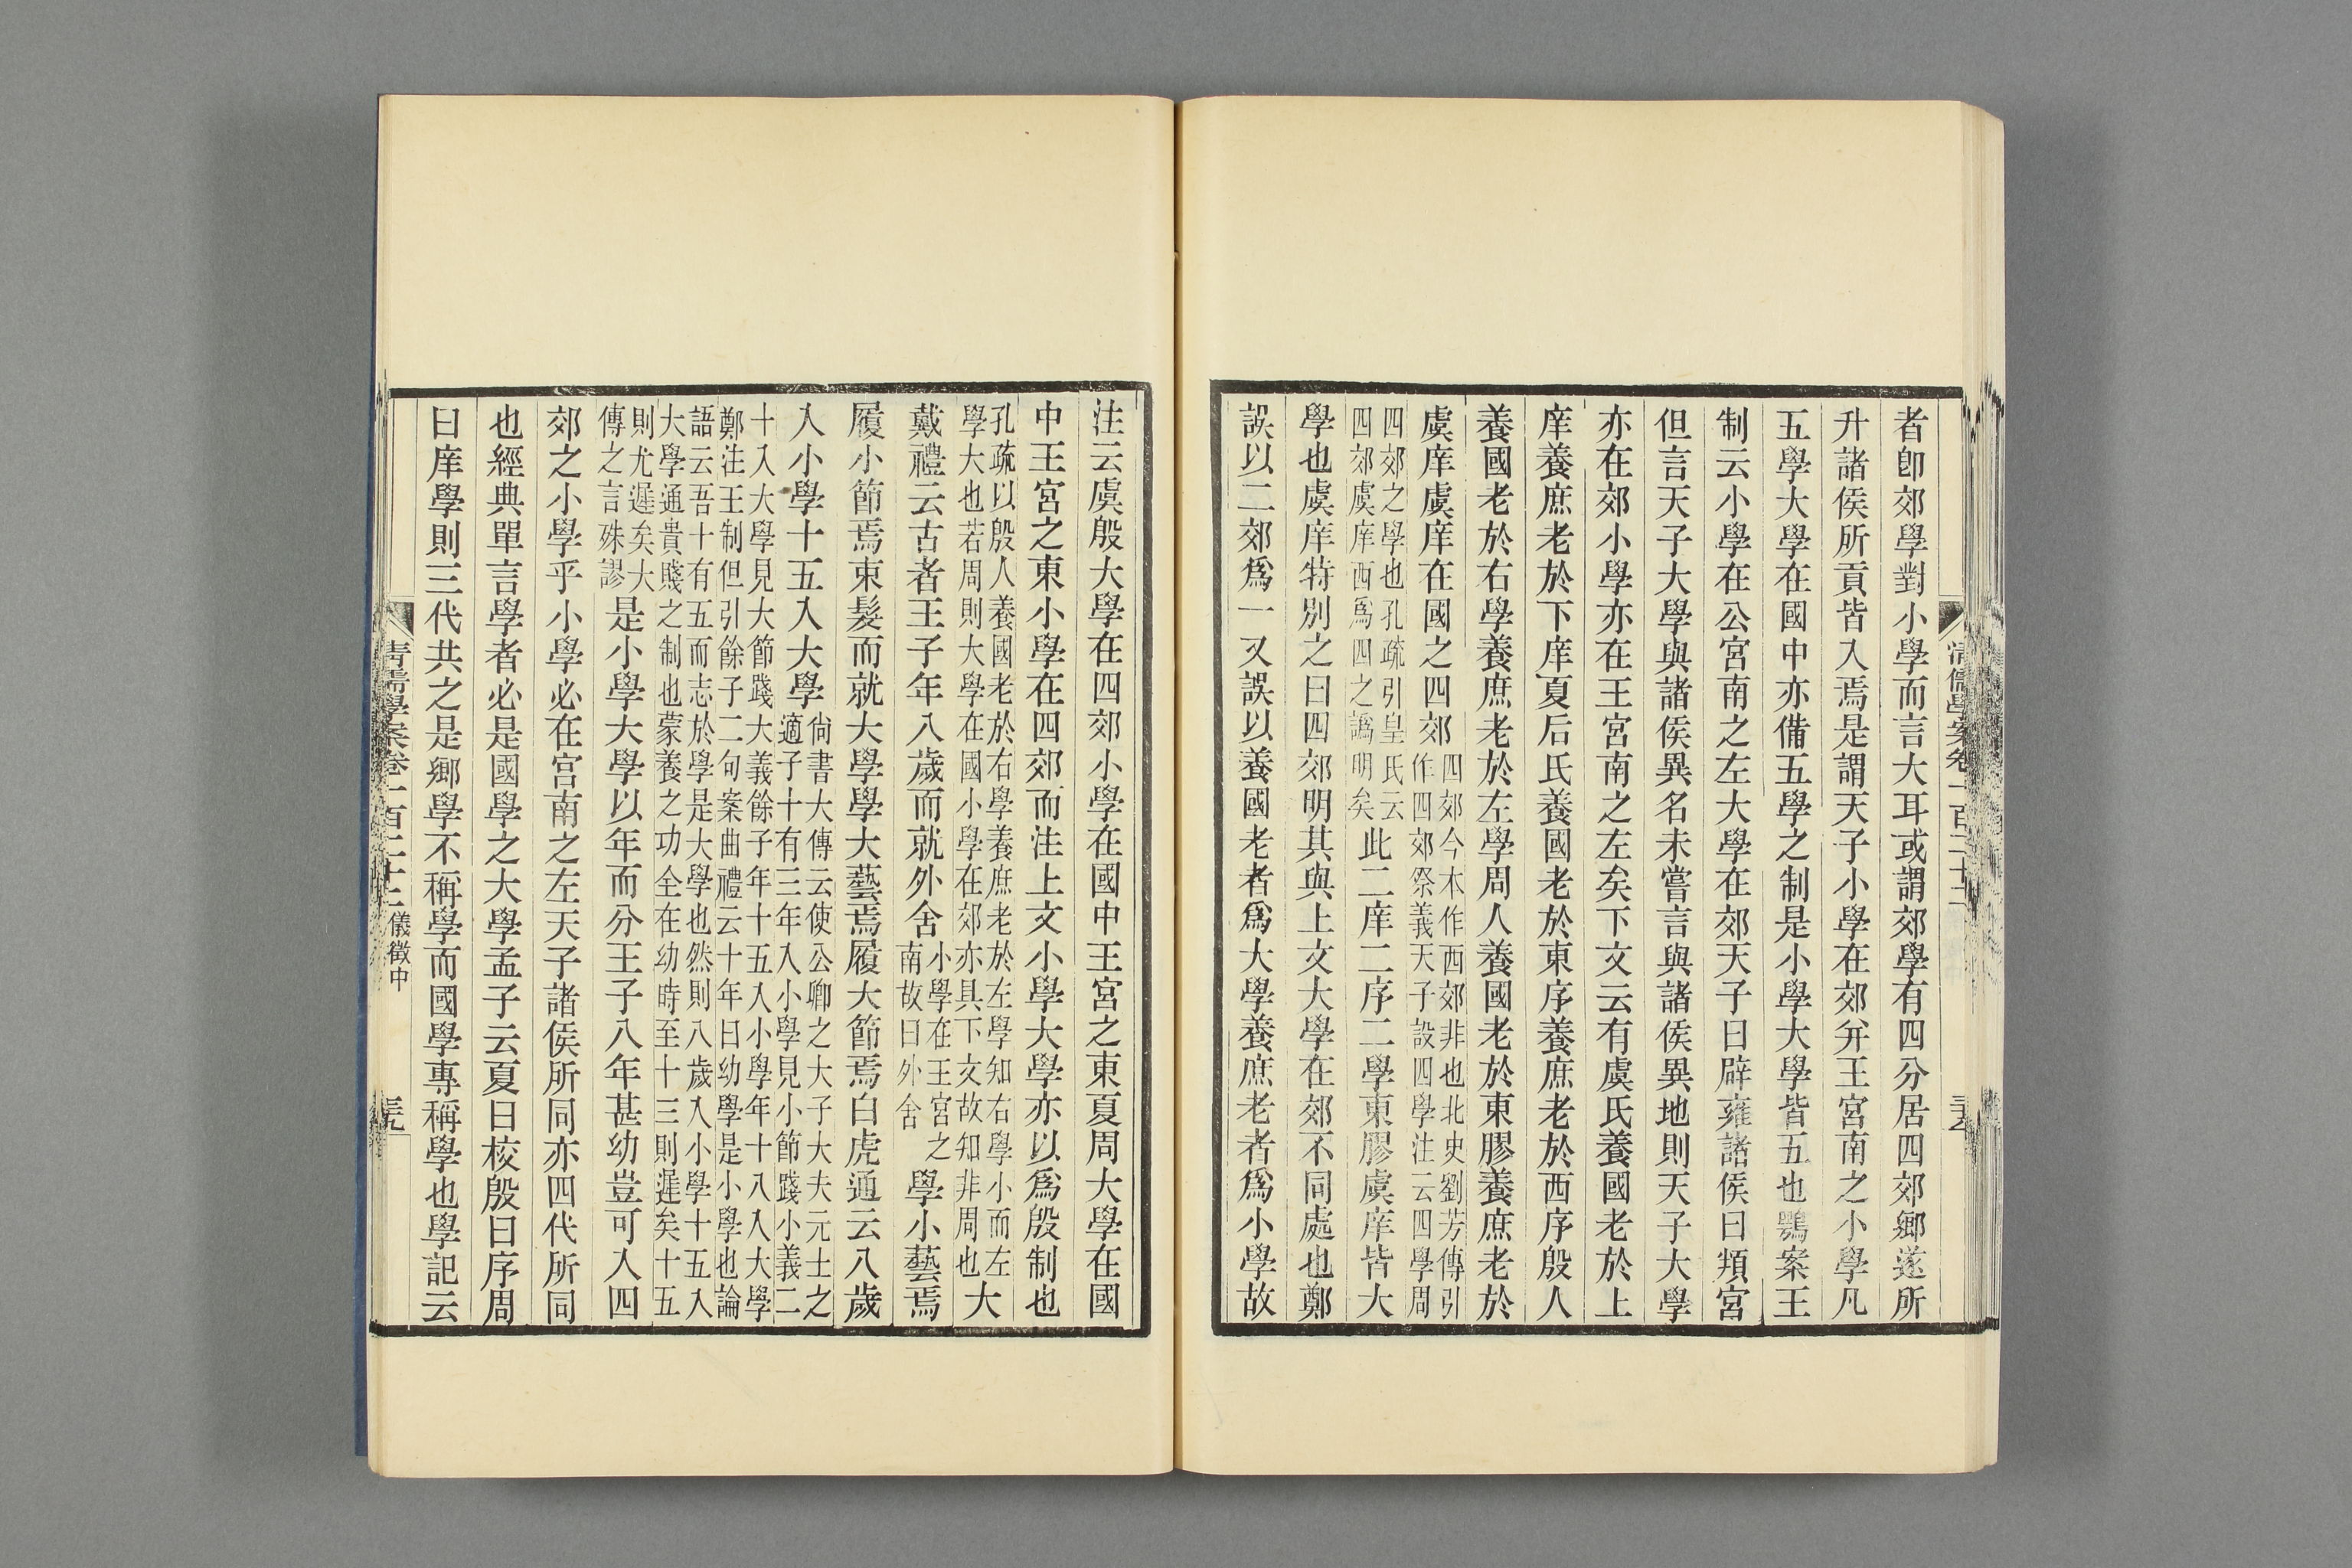 者卽郊學對小學而言大耳或謂郊學有四分居四郊鄉遂所
升諸侯所貢皆入焉是謂天子小學在郊幷王宮南之小學凡
五學大學在國中亦備五學之制是小學大學皆五也鶚案王
制云小學在公宮南之左大學在郊天子曰辟雍諸侯曰頖宮
但言天子大學與諸侯異名未嘗言與諸侯異地則天子大學
亦在郊小學亦在王宮南之左矣下文云有虞氏養國老於上
庠養庶老於下庠夏后氏養國老於東序養庶老於西序殷人
養國老於右學養庶老於左學周人養國老於東膠養庶老於
虞庠虞庠在國之四郊四郊今本作西郊非也北史劉芳傳引
作四郊祭義天子設四學注云四學周
四郊之學也孔疏引皇氏云
四郊虞庠西爲四之譌明矣此二庠二序二學東膠虞庠皆大
學也虞庠特別之曰四郊明其與上文大學在郊不同處也鄭
誤以二郊爲一又誤以養國老者爲大學養庶老者爲小學故
清儒學案卷一百二十二
注云虞殷大學在四郊小學在國中王宮之東夏周大學在國
中王宮之東小學在四郊而注上文小學大學亦以爲殷制也
孔疏以殷人養國老於右學養庶老於左學知右學小而左
學大也若周則大學在國小學在郊亦具下文故知非周也大
戴禮云古者王子年八歲而就外舍小學在王宮之
南故曰外舍學小藝焉
履小節焉束髮而就大學學大藝焉履大節焉白虎通云八歲
入小學十五入大學尙書大傳云使公卿之大子大夫元士之
適子十有三年入小學見小節踐小義二
十入大學見大節踐大義餘子年十五入小學年十八入大學
鄭注王制但引餘子二句案曲禮云十年曰幼學是小學也論
語云吾十有五而志於學是大學也然則八歲入小學十五入
大學通貴賤之制也蒙養之功全在幼時至十三則遲矣十五
則尤遲矣大
傳之言殊謬是小學大學以年而分王子八年甚幼豈可入四
郊之小學乎小學必在宮南之左天子諸侯所同亦四代所同
也經典單言學者必是國學之大學孟子云夏曰校殷曰序周
曰庠學則三代共之是鄉學不稱學而國學專稱學也學記云
清儒學案卷一百二十二 儀徵中